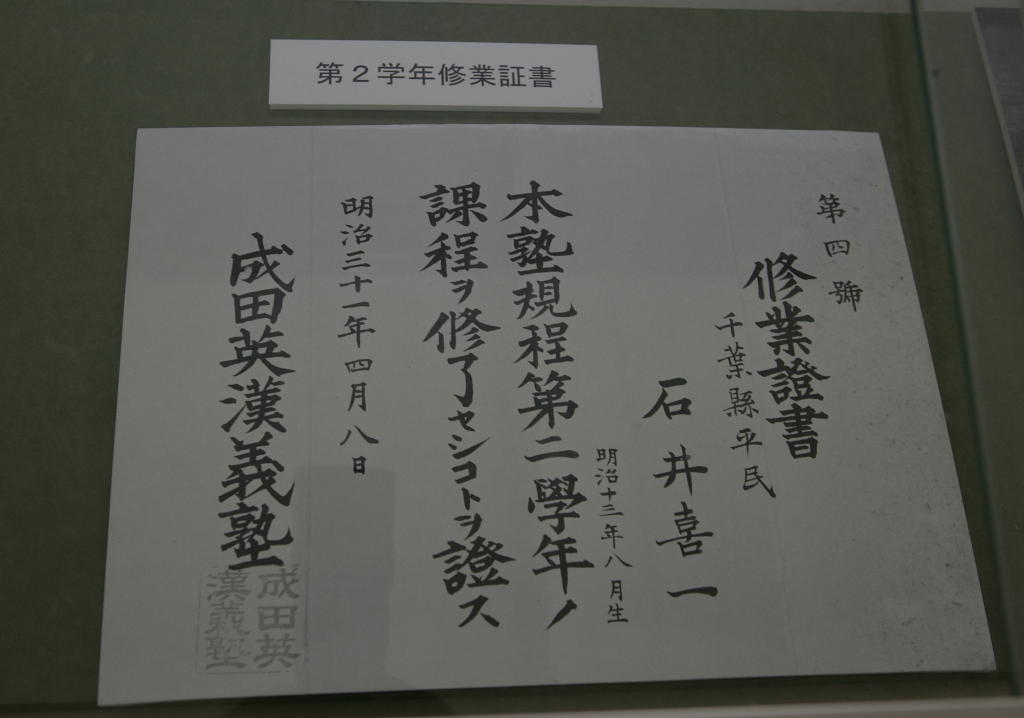 第2学年修業証書
第四號
修業證書
千葉縣平民
石井喜一
明治十三年八月生
本塾規程第二學年ノ
課程ヲ修了セシコトヲ證ス
明治三十一年四月八日
成田英漢義塾
成田英
漢義塾